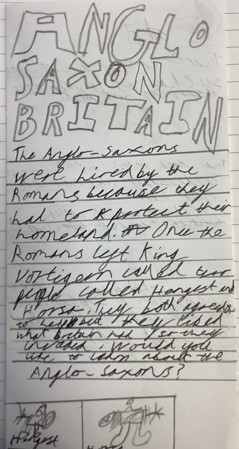 ANGLO
SAXON
BRITAIN
The Anglo-Saxons
were hired by the
Romans because they
had to protect their
homeland. Once the
Romans left King
Vortigern called two
people called Hengest and
Horsa. They both agreed
to help but they liked
what Britain had so they
invaded. Would you
like to learn about the
Anglo-Saxons?
Hengest